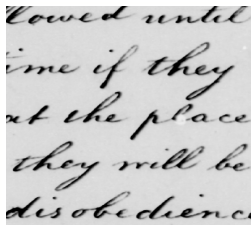 llowed until
time if they
at the place
they will be
disobedienc